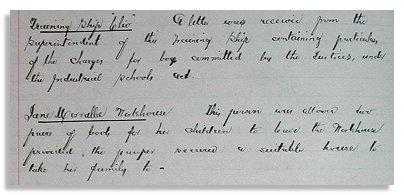 Training Ship Clio A letter was received from the
Superintendent of the Training Ship containing particulars
of the charges for boys committed by the Justices, under
the Industrial Schools Act.
Jane Workhouse This person was allowed two
pairs of boots for her children to leave the Workhouse
provided the pauper secured a suitable house to
take her family to -